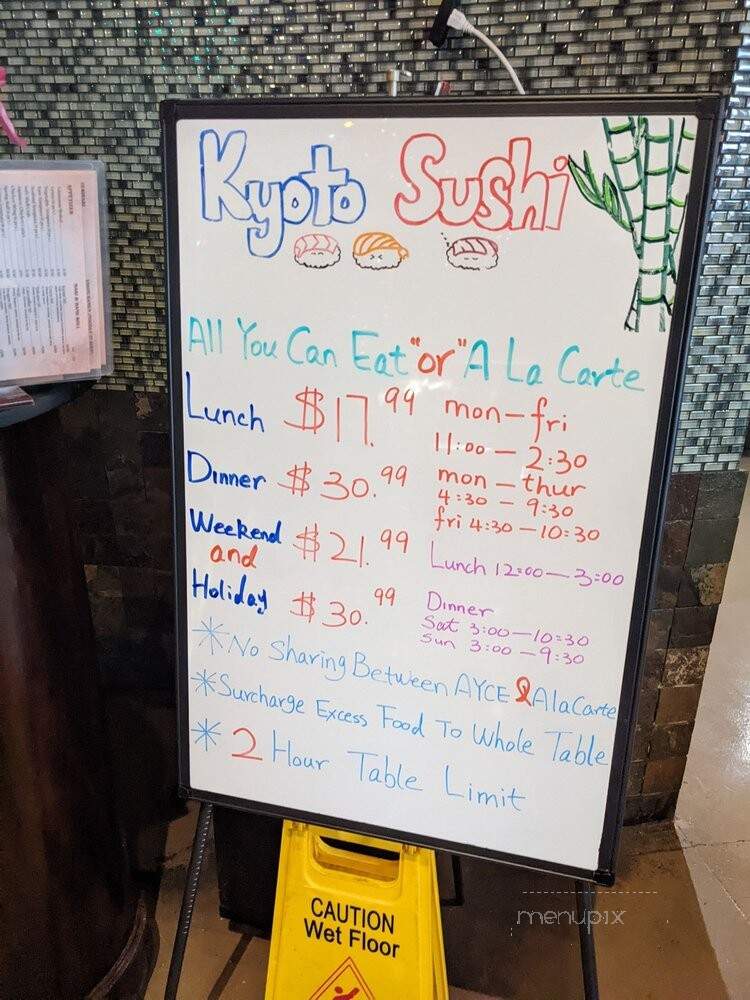 Kyoto Sushi
All You Can Eat "or" A La Carte
Lunch $17.99 mon-fri
11:00 - 2:30
Dinner $30.99 mon - thur
4:30 - 9:30
fri 4:30 - 10:30
Weekend
and
Holiday
$21.99 Lunch 12:00 - 3:00
$30.99 Dinner
Sat 3:00 - 10:30
Sun 3:00 - 9:30
* No Sharing Between AYCE & A la Carte
* Surcharge Excess Food To Whole Table
* 2 Hour Table Limit
CAUTION
Wet Floor
menupix